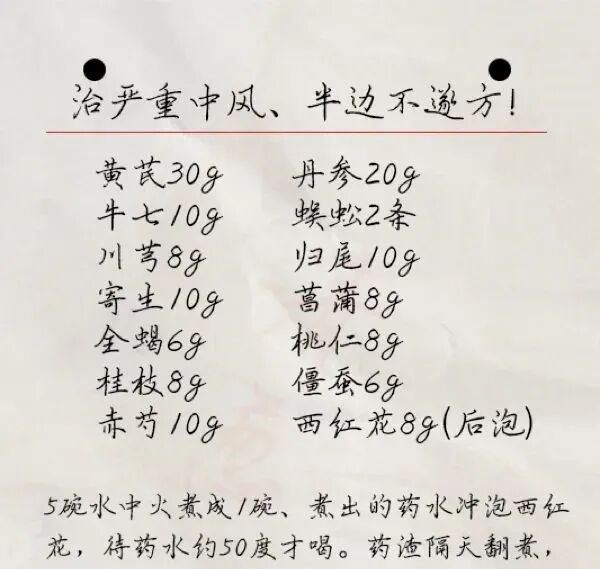 治严重中风、半边不遂方!
黄芪30g 丹参20g
牛七10g 蜈蚣2条
川芎8g 归尾10g
寄生10g 菖蒲8g
全蝎6g 桃仁8g
桂枝8g 僵蚕6g
赤芍10g 西红花8g(后泡)
5碗水中火煮成1碗、煮出的药水冲泡西红
花，待药水约50度才喝。药渣隔天翻煮，